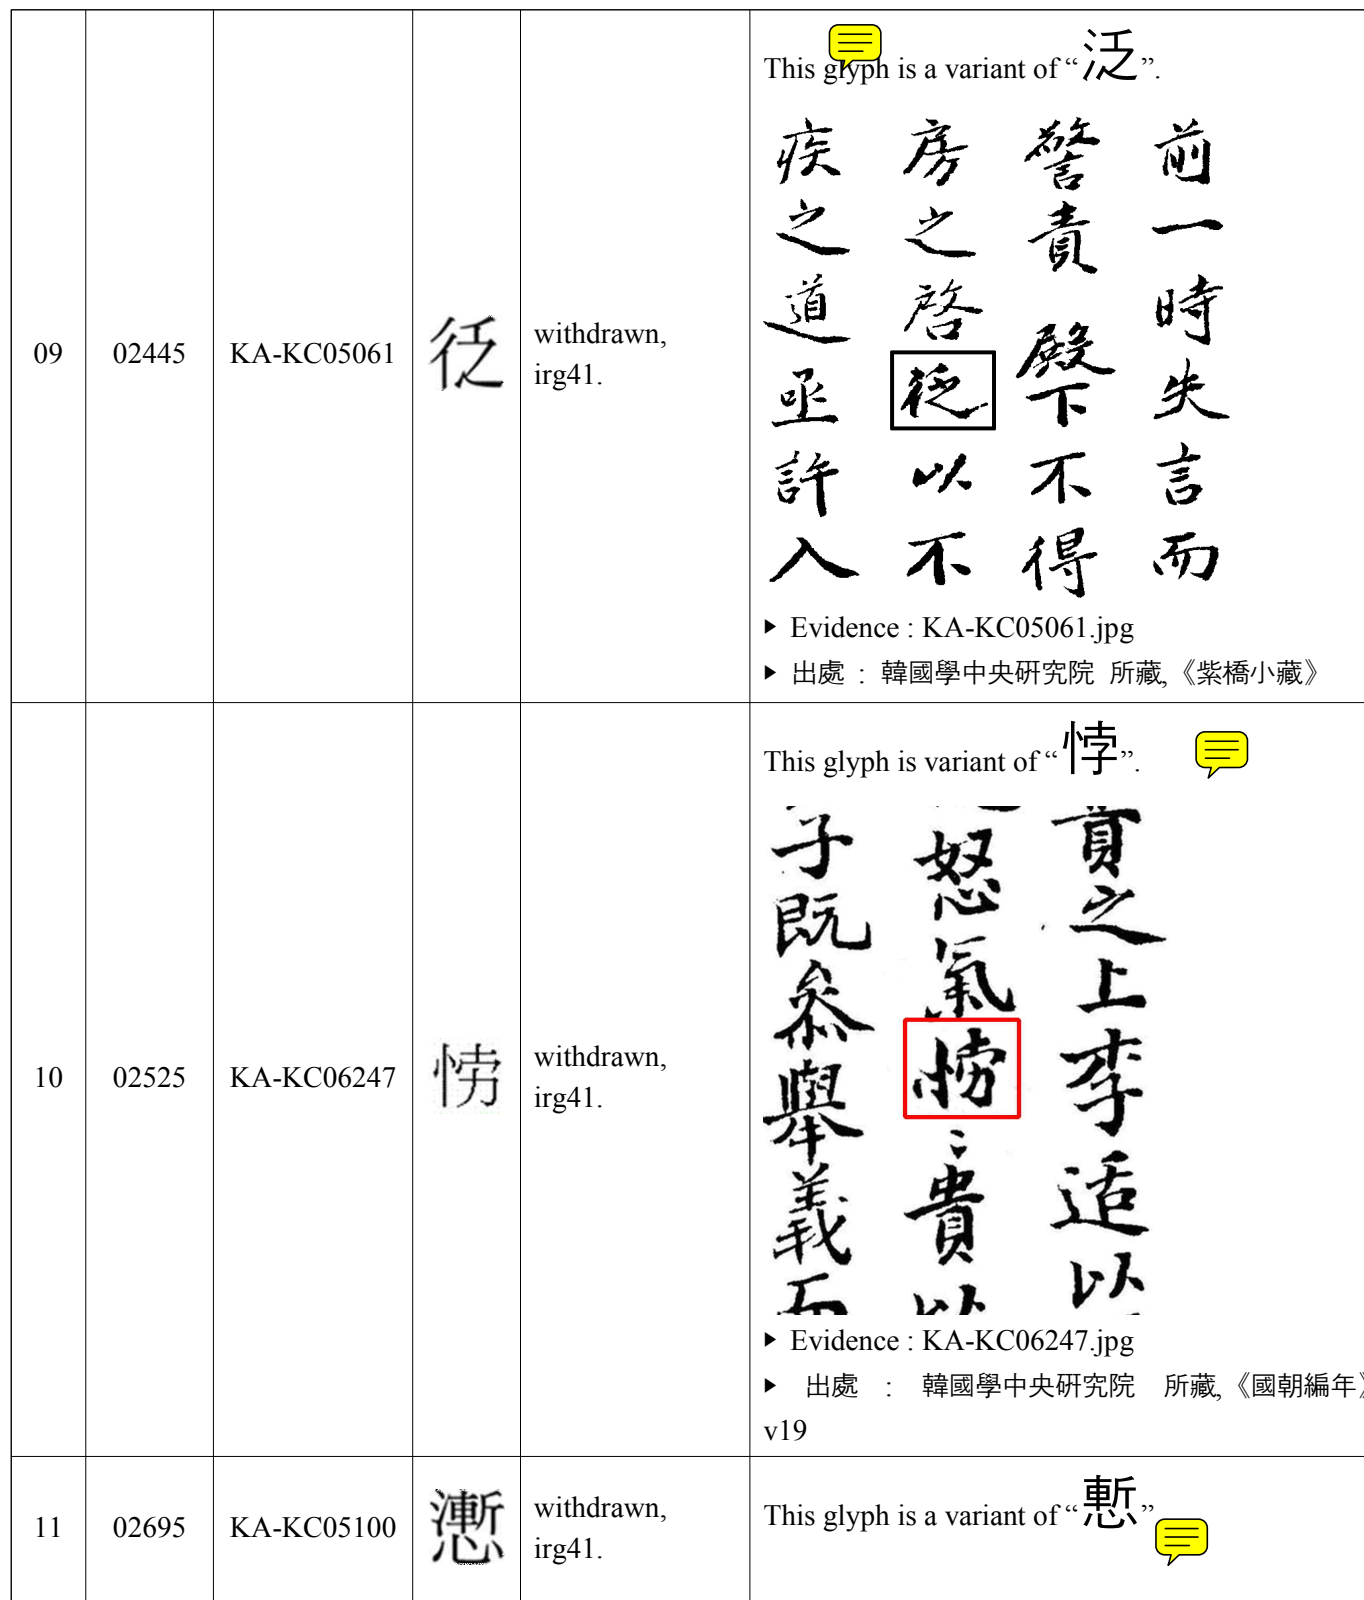 09
02445
KA-KC05061
withdrawn,
irg41.
This glyph is a variant of “泛”.
前一時失言而
警責殿下不得
房之啓以不
疾之道亟許入
▶ Evidence : KA-KC05061.jpg
▶ 出處 : 韓國學中央硏究院 所藏,《紫橋小藏》
10
02525
KA-KC06247
withdrawn,
irg41.
This glyph is variant of “悖”.
之上李适以
怒氣〻貴以
子既叅舉義而
▶ Evidence : KA-KC06247.jpg
▶ 出處 : 韓國學中央硏究院 所藏,《國朝編年》
v19
11
02695
KA-KC05100
withdrawn,
irg41.
This glyph is a variant of “慙”